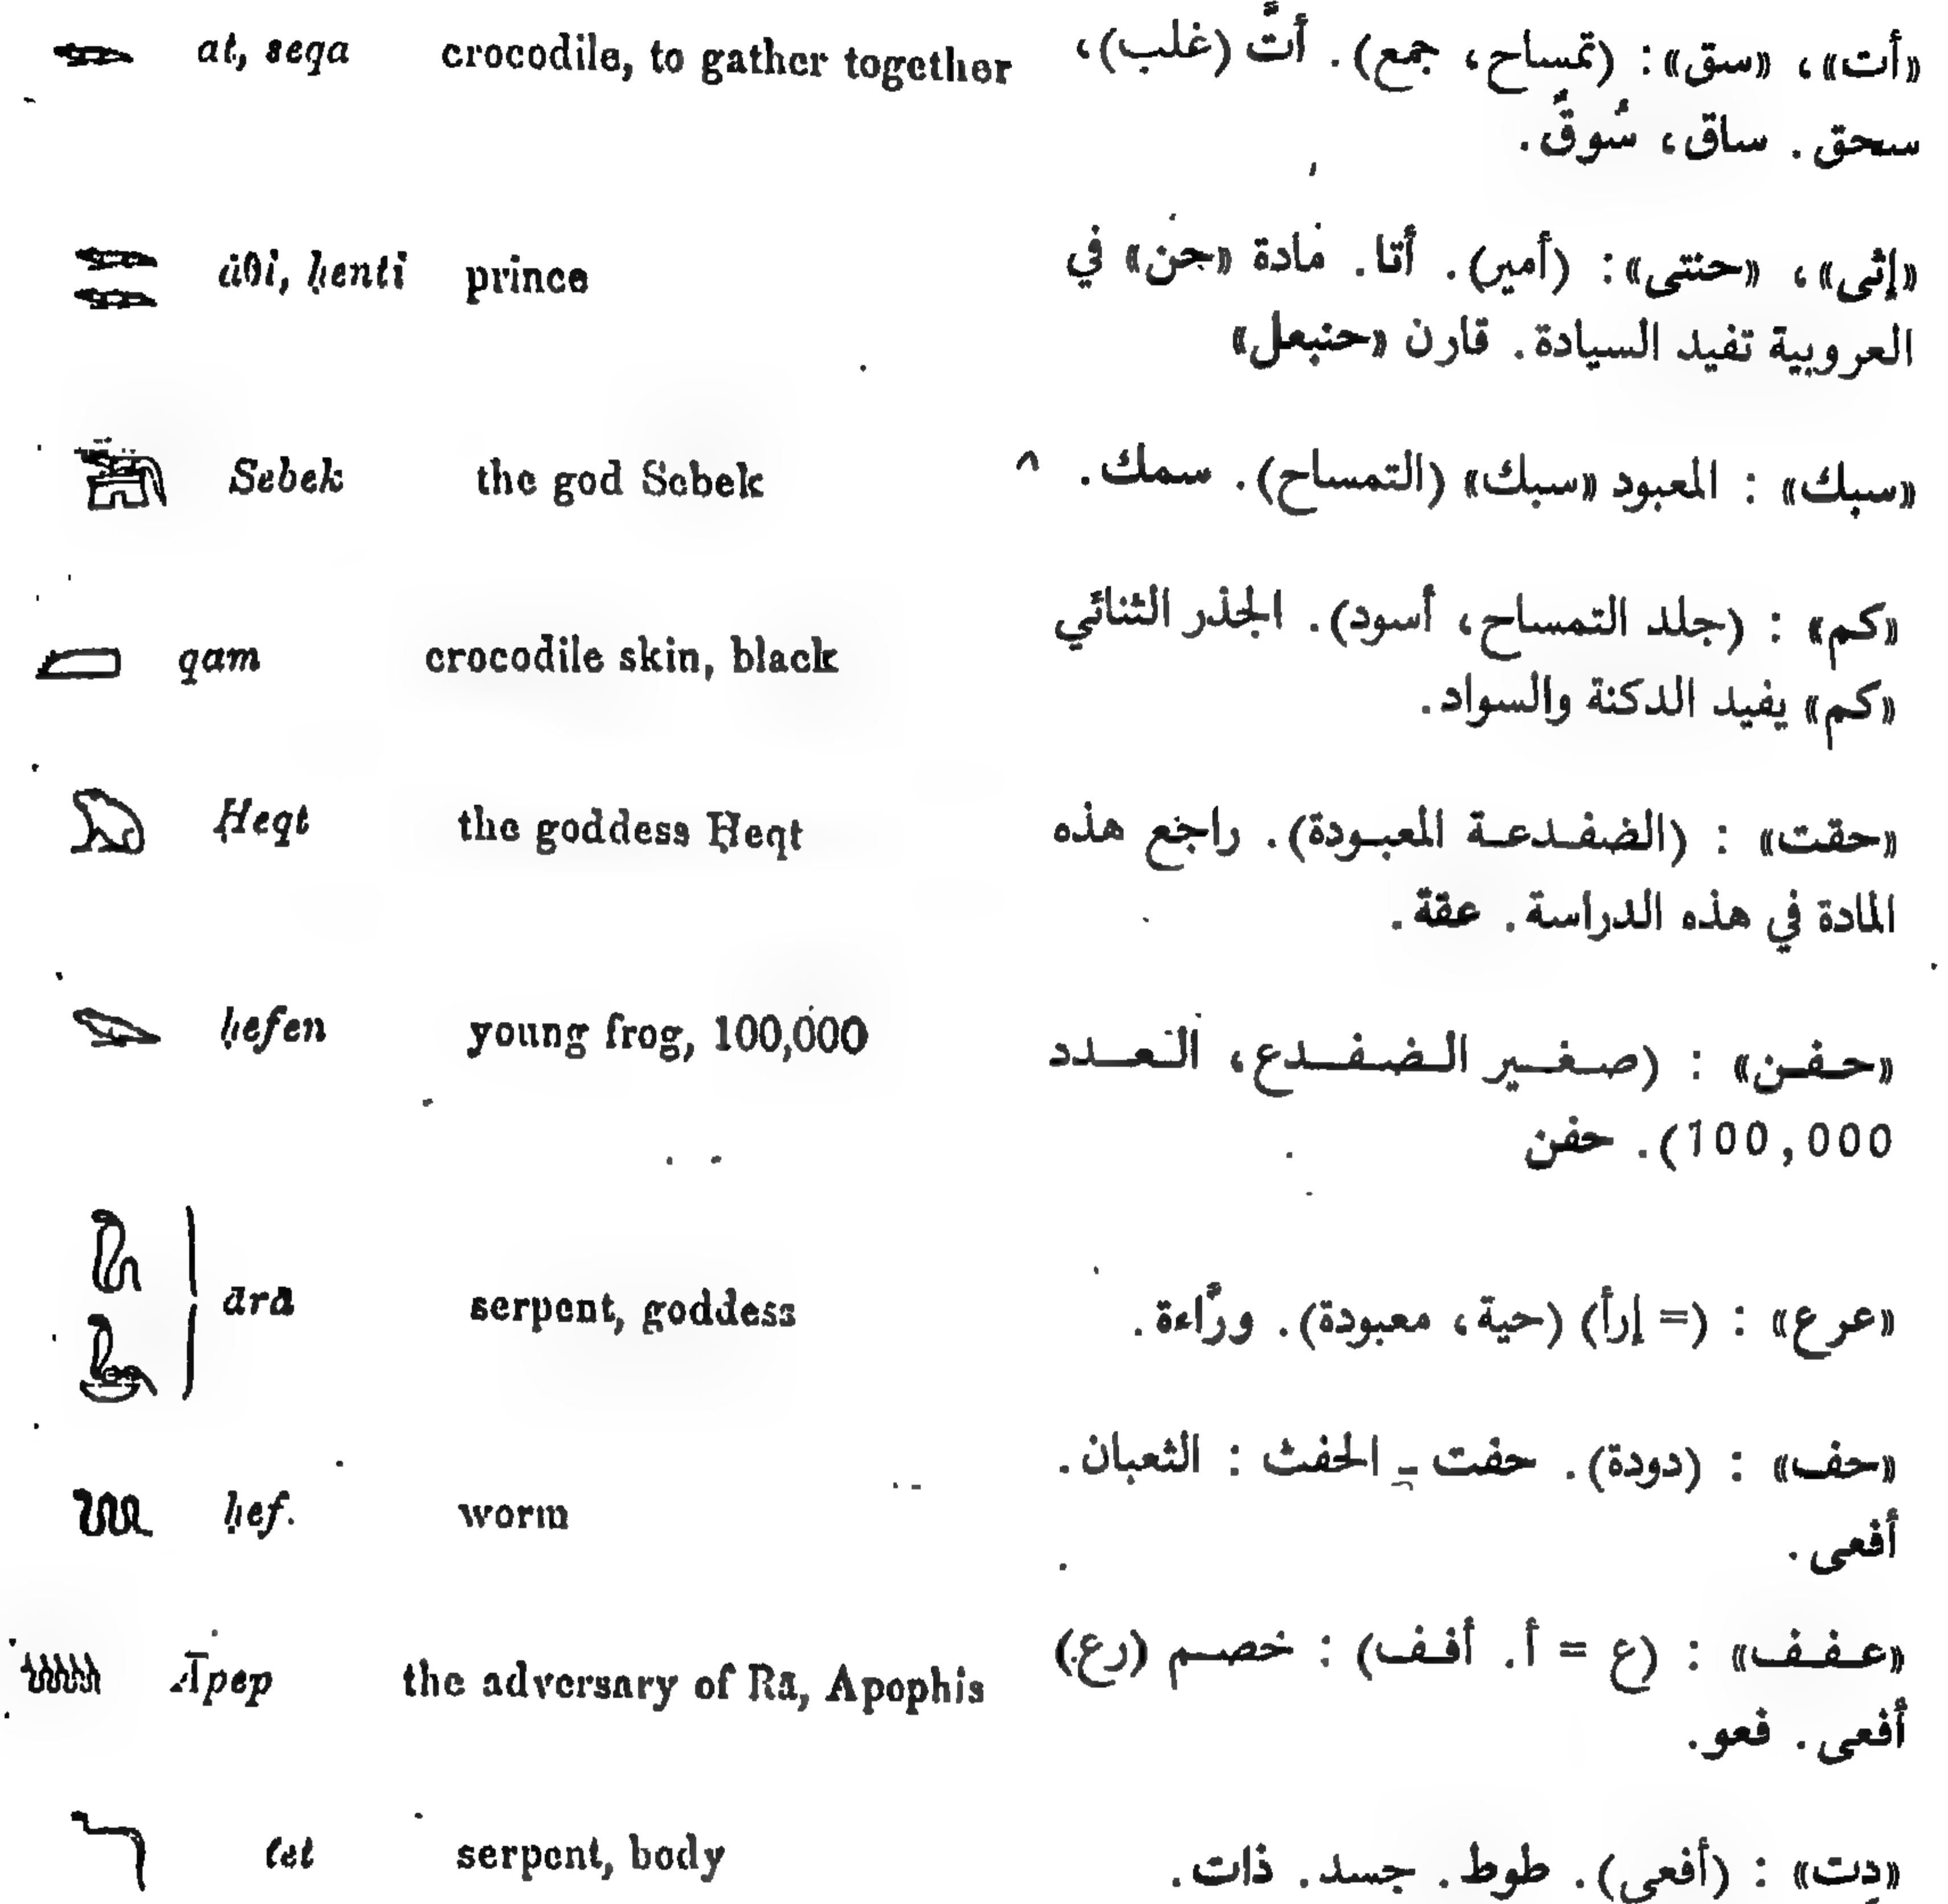 at, seqa crocodile, to gather together «أت»، «سق»: (تمساح، جمع). أتَّ (غلب)،
سحق. ساق، سُوقٌ.
ȧθi, ḥenti prince «إثي»، «حنتى»: (أمير). أتا. مادة «حن» في
العروبية تفيد السيادة. قارن «حنبعل»
Sebek the god Sebek «سبك» : المعبود «سبك» (التمساح). سمك.
qam crocodile skin, black «كم» : (جلد التمساح، أسود). الجذر الثنائي
«كم» يفيد الدكنة والسواد.
Ḥeqt the goddess Ḥeqt «حقت» : (الضفدعة المعبودة). راجع هذه
المادة في هذه الدراسة. عقة.
ḥefen young frog, 100,000 «حفن» : (صغير الضفدع، العدد
100,000). حفن
ārā serpent, goddess «عرع» : (= إرأ) (حية، معبودة). ورَّاءة.
ḥef. worm «حف» : (دودة). حفت ـ الحفث : الثعبان.
أفعى.
Āpep the adversary of Rā, Apophis «عفف» : (ع = أ. أفف) : خصم (رع)
أفعى. فعو.
tet serpent, body «دِت» : (أفعى). طوط. جسد. ذات.